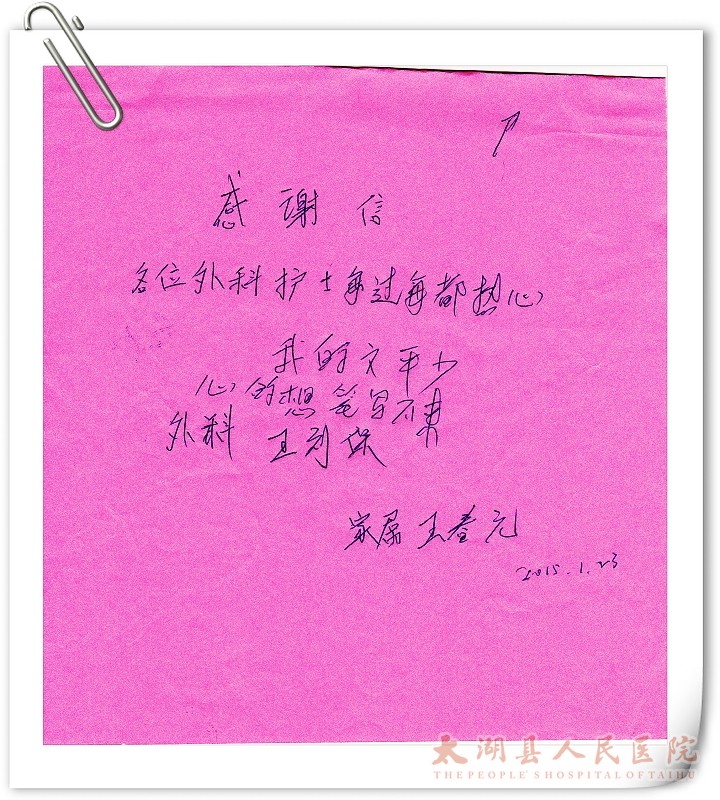 感谢信
各位外科护士每过每都热心
我的文平少
心的想笔写不来
外科 王列保
家属 王春元
2015.1.23
太湖县人民医院
THE PEOPLE'S HOSPITAL OF TAIHU